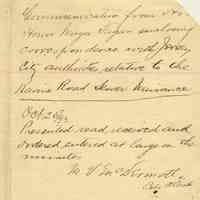 Communication from His
Honor Mayor  enclosing
correspondence with Jersey
City authorities relative to the
Ravine Road Sewer Nuisance
Oct 26/93
Presented read received and
ordered entered at large on the
minutes
M V McDermott
City Clerk